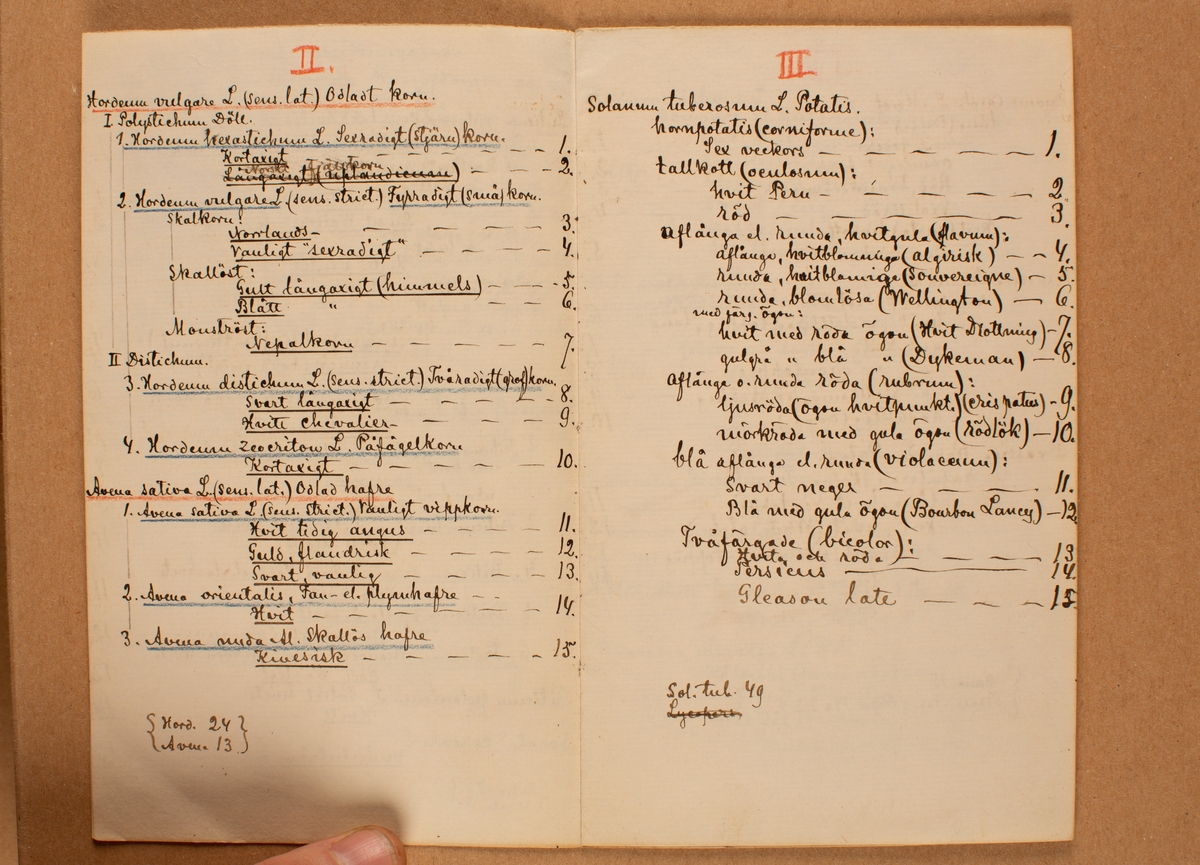 II.
Hordeum vulgare L. (sens. lat.) Odladt korn.
I Polystichum Döll.
1. Hordeum hexastichum L. Sexradigt (stjärn) korn.
Kortaxigt — — — 1.
Långaxigt (uplandicum) — — 2.
2. Hordeum vulgare L. (sens. strict.) Fyrradigt (små) korn.
Skalkorn:
Norrlands — — — 3.
Vanligt "sexradigt" — — — 4.
Skallöst:
Gult långaxigt (himmels) — — 5.
Blått " — — — 6.
Monströst:
Nepalkorn — — — 7.
II Distichum.
3. Hordeum distichum L. (sens. strict.) Tvåradigt (grof) korn.
Svart långaxigt — — — 8.
Hvitt chevalier — — — 9.
4. Hordeum zeocriton L. Påfågelkorn
Kortaxigt — — — 10.
Avena sativa L. (sens. lat.) Odlad hafre
1. Avena sativa L. (sens. strict.) Vanligt vippkorn.
Hvit tidig angus — — — 11.
Guld, flandrisk — — — 12.
Svart, vanlig — — — 13.
2. Avena orientalis, Fan- el. plymhafre — —
Hvit — — — 14.
3. Avena nuda Al. Skallös hafre
Kinesisk — — — 15.
{Hord. 24}
{Avena 13}
III
Solanum tuberosum L. Potatis.
hornpotatis (corniforme):
Sex veckors — — — 1.
tallkott (oculosum):
hvit Peru — — — 2
röd — — — 3.
aflånga el. runda, hvitgula (flavum):
aflånga, hvitblommiga (algirisk) — — 4.
runda, hvitblommiga (Souvereigne) — 5.
runda, blomlösa (Wellington) — 6.
med färg. ögon:
hvit med röda ögon (Hvit Drottning) — 7.
gulgrå " blå " (Dykeman) — 8.
aflånga o. runda röda (rubrum):
ljusröda (ögon hvitpunkt.) (crispatus) — 9.
mörkröda med gula ögon (rödlök) — 10.
blå aflånga el. runda (violaceum):
Svart neger — — — 11.
Blå med gula ögon (Bourbon Lancy) — 12
Tvåfärgade (bicolor):
Hvita och röda — — — 13
Persicus — 14.
Gleason late — — — 15
Sol. tub. 49
Lycopers.